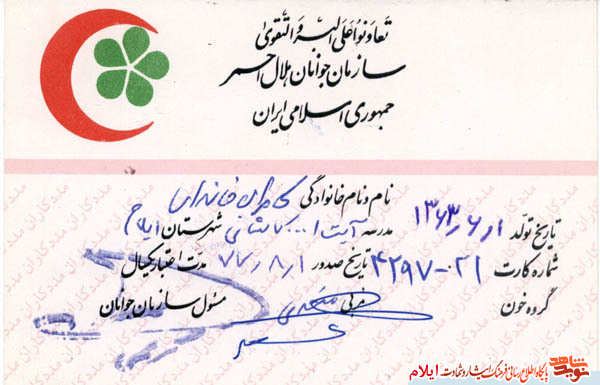 تعاونوا علی البر و التقوی
سازمان جوانان هلال احمر
جمهوری اسلامی ایران
نام و نام خانوادگی کامران
تاریخ تولد ۱۳۶۳٫۶٫۱ مدرسه آیت ا... کاشانی شهرستان ایلام
شماره کارت ۴۲۹۷-۰۲۱ تاریخ صدور ۷۷٫۸٫۱ مدت اعتبار یکسال
گروه خون مربی مسئول سازمان جوانان
نوید شاهد پایگاه اطلاع رسانی فرهنگ ایثار و شهادت ایلام